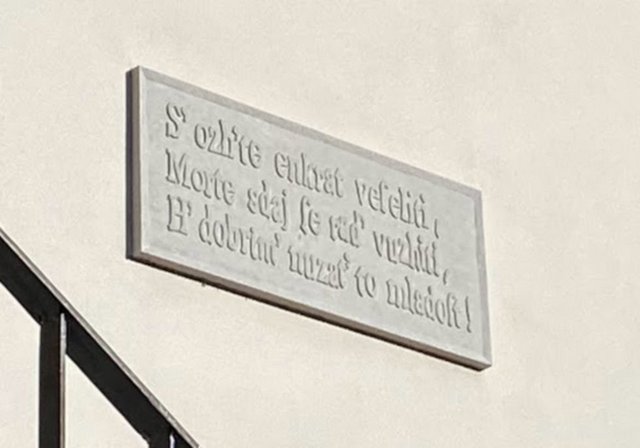 S' ozh'te enkrat veſeliti,
Morte sdaj ſe rad' vuzhiti,
H' dobrim' nuzat' to mladoſt!